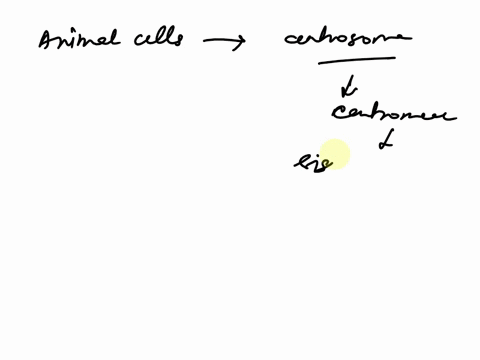 Animal cells → centrosome
↓
centromere
↓
sis